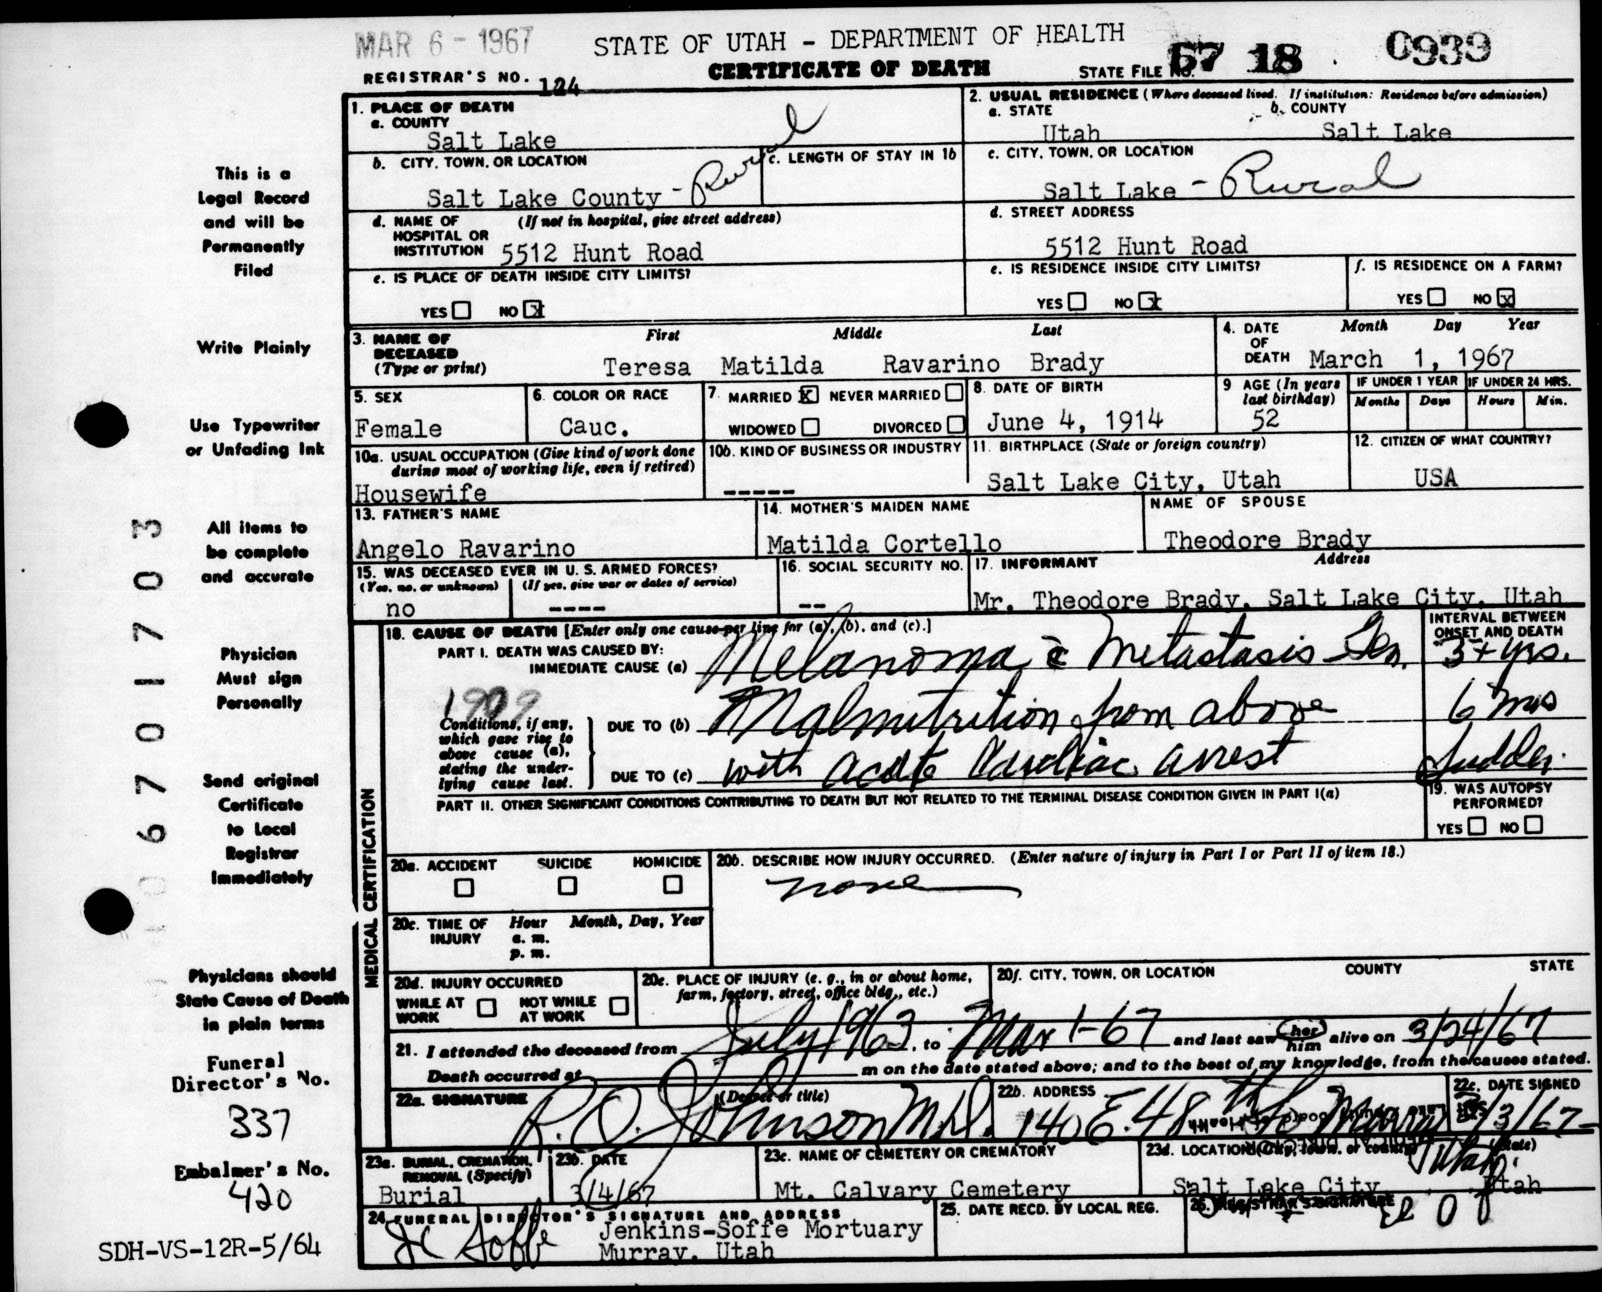 MAR 6 - 1967
STATE OF UTAH - DEPARTMENT OF HEALTH
CERTIFICATE OF DEATH
REGISTRAR'S NO. 124
STATE FILE NO. 67 18 0939
1. PLACE OF DEATH
a. COUNTY
Salt Lake
2. USUAL RESIDENCE (Where deceased lived. If institution: Residence before admission)
a. STATE b. COUNTY
Utah Salt Lake
b. CITY, TOWN, OR LOCATION c. LENGTH OF STAY IN 1b
Salt Lake County - Rural
c. CITY, TOWN, OR LOCATION
Salt Lake - Rural
d. NAME OF (If not in hospital, give street address)
HOSPITAL OR
INSTITUTION 5512 Hunt Road
d. STREET ADDRESS
5512 Hunt Road
e. IS PLACE OF DEATH INSIDE CITY LIMITS?
YES NO X
e. IS RESIDENCE INSIDE CITY LIMITS?
YES NO X
f. IS RESIDENCE ON A FARM?
YES NO X
3. NAME OF First Middle Last
DECEASED
(Type or print) Teresa Matilda Ravarino Brady
4. DATE Month Day Year
OF
DEATH March 1, 1967
5. SEX
Female
6. COLOR OR RACE
Cauc.
7. MARRIED X NEVER MARRIED
WIDOWED DIVORCED
8. DATE OF BIRTH
June 4, 1914
9 AGE (In years
last birthday)
52
IF UNDER 1 YEAR IF UNDER 24 HRS.
Months Days Hours Min.
10a. USUAL OCCUPATION (Give kind of work done
during most of working life, even if retired)
Housewife
10b. KIND OF BUSINESS OR INDUSTRY
-----
11. BIRTHPLACE (State or foreign country)
Salt Lake City, Utah
12. CITIZEN OF WHAT COUNTRY?
USA
13. FATHER'S NAME
Angelo Ravarino
14. MOTHER'S MAIDEN NAME
Matilda Cortello
NAME OF SPOUSE
Theodore Brady
15. WAS DECEASED EVER IN U. S. ARMED FORCES?
(Yes, no, or unknown) (If yes, give war or dates of service)
no ----
16. SOCIAL SECURITY NO.
--
17. INFORMANT Address
Mr. Theodore Brady, Salt Lake City, Utah
MEDICAL CERTIFICATION
18. CAUSE OF DEATH [Enter only one cause per line for (a), (b), and (c).]
INTERVAL BETWEEN
ONSET AND DEATH
PART I. DEATH WAS CAUSED BY:
IMMEDIATE CAUSE (a) Melanoma c̄ Metastasis Gen. 3+ yrs.
1909
Conditions, if any,
which gave rise to
above cause (a),
stating the under-
lying cause last.
DUE TO (b) Malnutrition from above 6 mos
DUE TO (c) with acute Cardiac arrest Sudden
PART II. OTHER SIGNIFICANT CONDITIONS CONTRIBUTING TO DEATH BUT NOT RELATED TO THE TERMINAL DISEASE CONDITION GIVEN IN PART I(a)
19. WAS AUTOPSY
PERFORMED?
YES NO
20a. ACCIDENT SUICIDE HOMICIDE
20b. DESCRIBE HOW INJURY OCCURRED. (Enter nature of injury in Part I or Part II of item 18.)
none
20c. TIME OF Hour Month, Day, Year
INJURY a. m.
p. m.
20d. INJURY OCCURRED
WHILE AT NOT WHILE
WORK AT WORK
20e. PLACE OF INJURY (e. g., in or about home,
farm, factory, street, office bldg., etc.)
20f. CITY, TOWN, OR LOCATION COUNTY STATE
21. I attended the deceased from July 1963, to Mar 1-67 and last saw her him alive on 3/24/67
Death occurred at m on the date stated above; and to the best of my knowledge, from the causes stated.
22a. SIGNATURE (Degree or title)
R. O. Johnson M.D.
22b. ADDRESS
140 E. 48th So Murray Utah
22c. DATE SIGNED
3/3/67
23a. BURIAL, CREMATION,
REMOVAL (Specify)
Burial
23b. DATE
3/4/67
23c. NAME OF CEMETERY OR CREMATORY
Mt. Calvary Cemetery
23d. LOCATION (City, town, or county) (State)
Salt Lake City, Utah
24. FUNERAL DIRECTOR'S SIGNATURE AND ADDRESS
Jenkins-Soffe Mortuary
Murray, Utah
25. DATE RECD. BY LOCAL REG.
26. REGISTRAR'S SIGNATURE
This is a
Legal Record
and will be
Permanently
Filed
Write Plainly
Use Typewriter
or Unfading Ink
All items to
be complete
and accurate
Physician
Must sign
Personally
Send original
Certificate
to Local
Registrar
Immediately
Physicians should
State Cause of Death
in plain terms
Funeral
Director's No.
337
Embalmer's No.
420
SDH-VS-12R-5/64